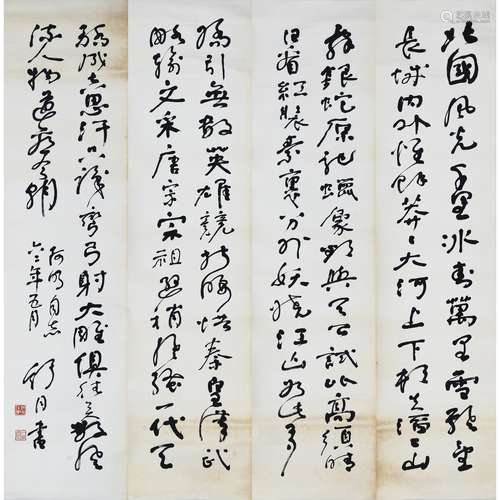 北國風光千里冰封萬里雪飄望
長城内外惟餘莽〻大河上下頓失滔〻山
舞銀蛇原馳蠟象欲與天公試比高須晴
日看紅裝素裹分外妖嬈江山如此多
嬌引無數英雄競折腰惜秦皇漢武
略輸文采唐宋宗祖遜稍風騷一代天
驕成吉思汗只識彎弓射大雕俱往矣數風
流人物還看今朝
同志
六三年五月
舒同書